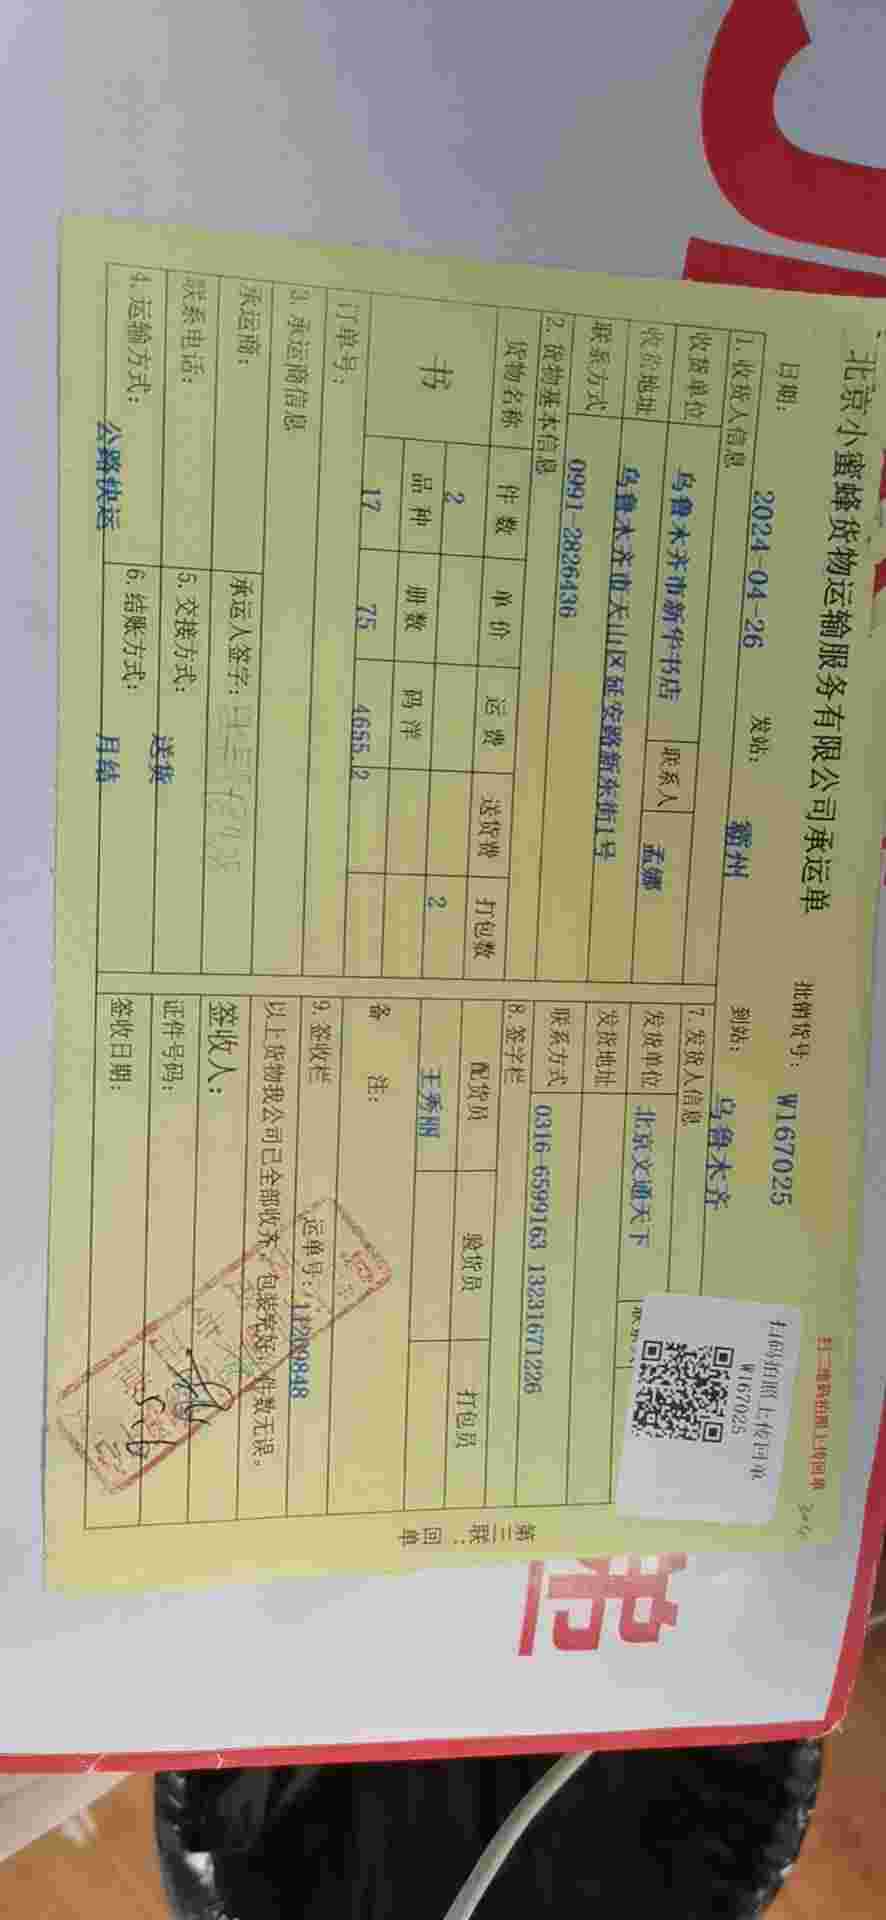 北京小蜜蜂货物运输服务有限公司承运单
扫二维码拍照上传回单
日期： 2024-04-26 发站： 霸州 到站： 乌鲁木齐
批销货号： W167025
扫码拍照上传回单
W167025
1.收货人信息
收货单位 乌鲁木齐市新华书店 联系人 孟娜
收货地址 乌鲁木齐市天山区延安路新东街1号
联系方式 0991-2826436
2.货物基本信息
货物名称 件数 单价 运费 送货费 打包数
书 2 2
品种 册数 码洋
17 75 4655.2
订单号：
3.承运商信息
承运商： 承运人签字：
联系电话： 5.交接方式： 送货
4.运输方式： 公路快运 6.结账方式： 月结
7.发货人信息
发货单位 北京文通天下
发货地址
联系方式 0316-6599163 13231671226
8.签字栏
配货员 验货员 打包员
王秀丽
备 注：
9.签收栏 运单号：
以上货物我公司已全部收齐，包装完好，件数无误。
签收人：
证件号码：
签收日期：
第三联：回单